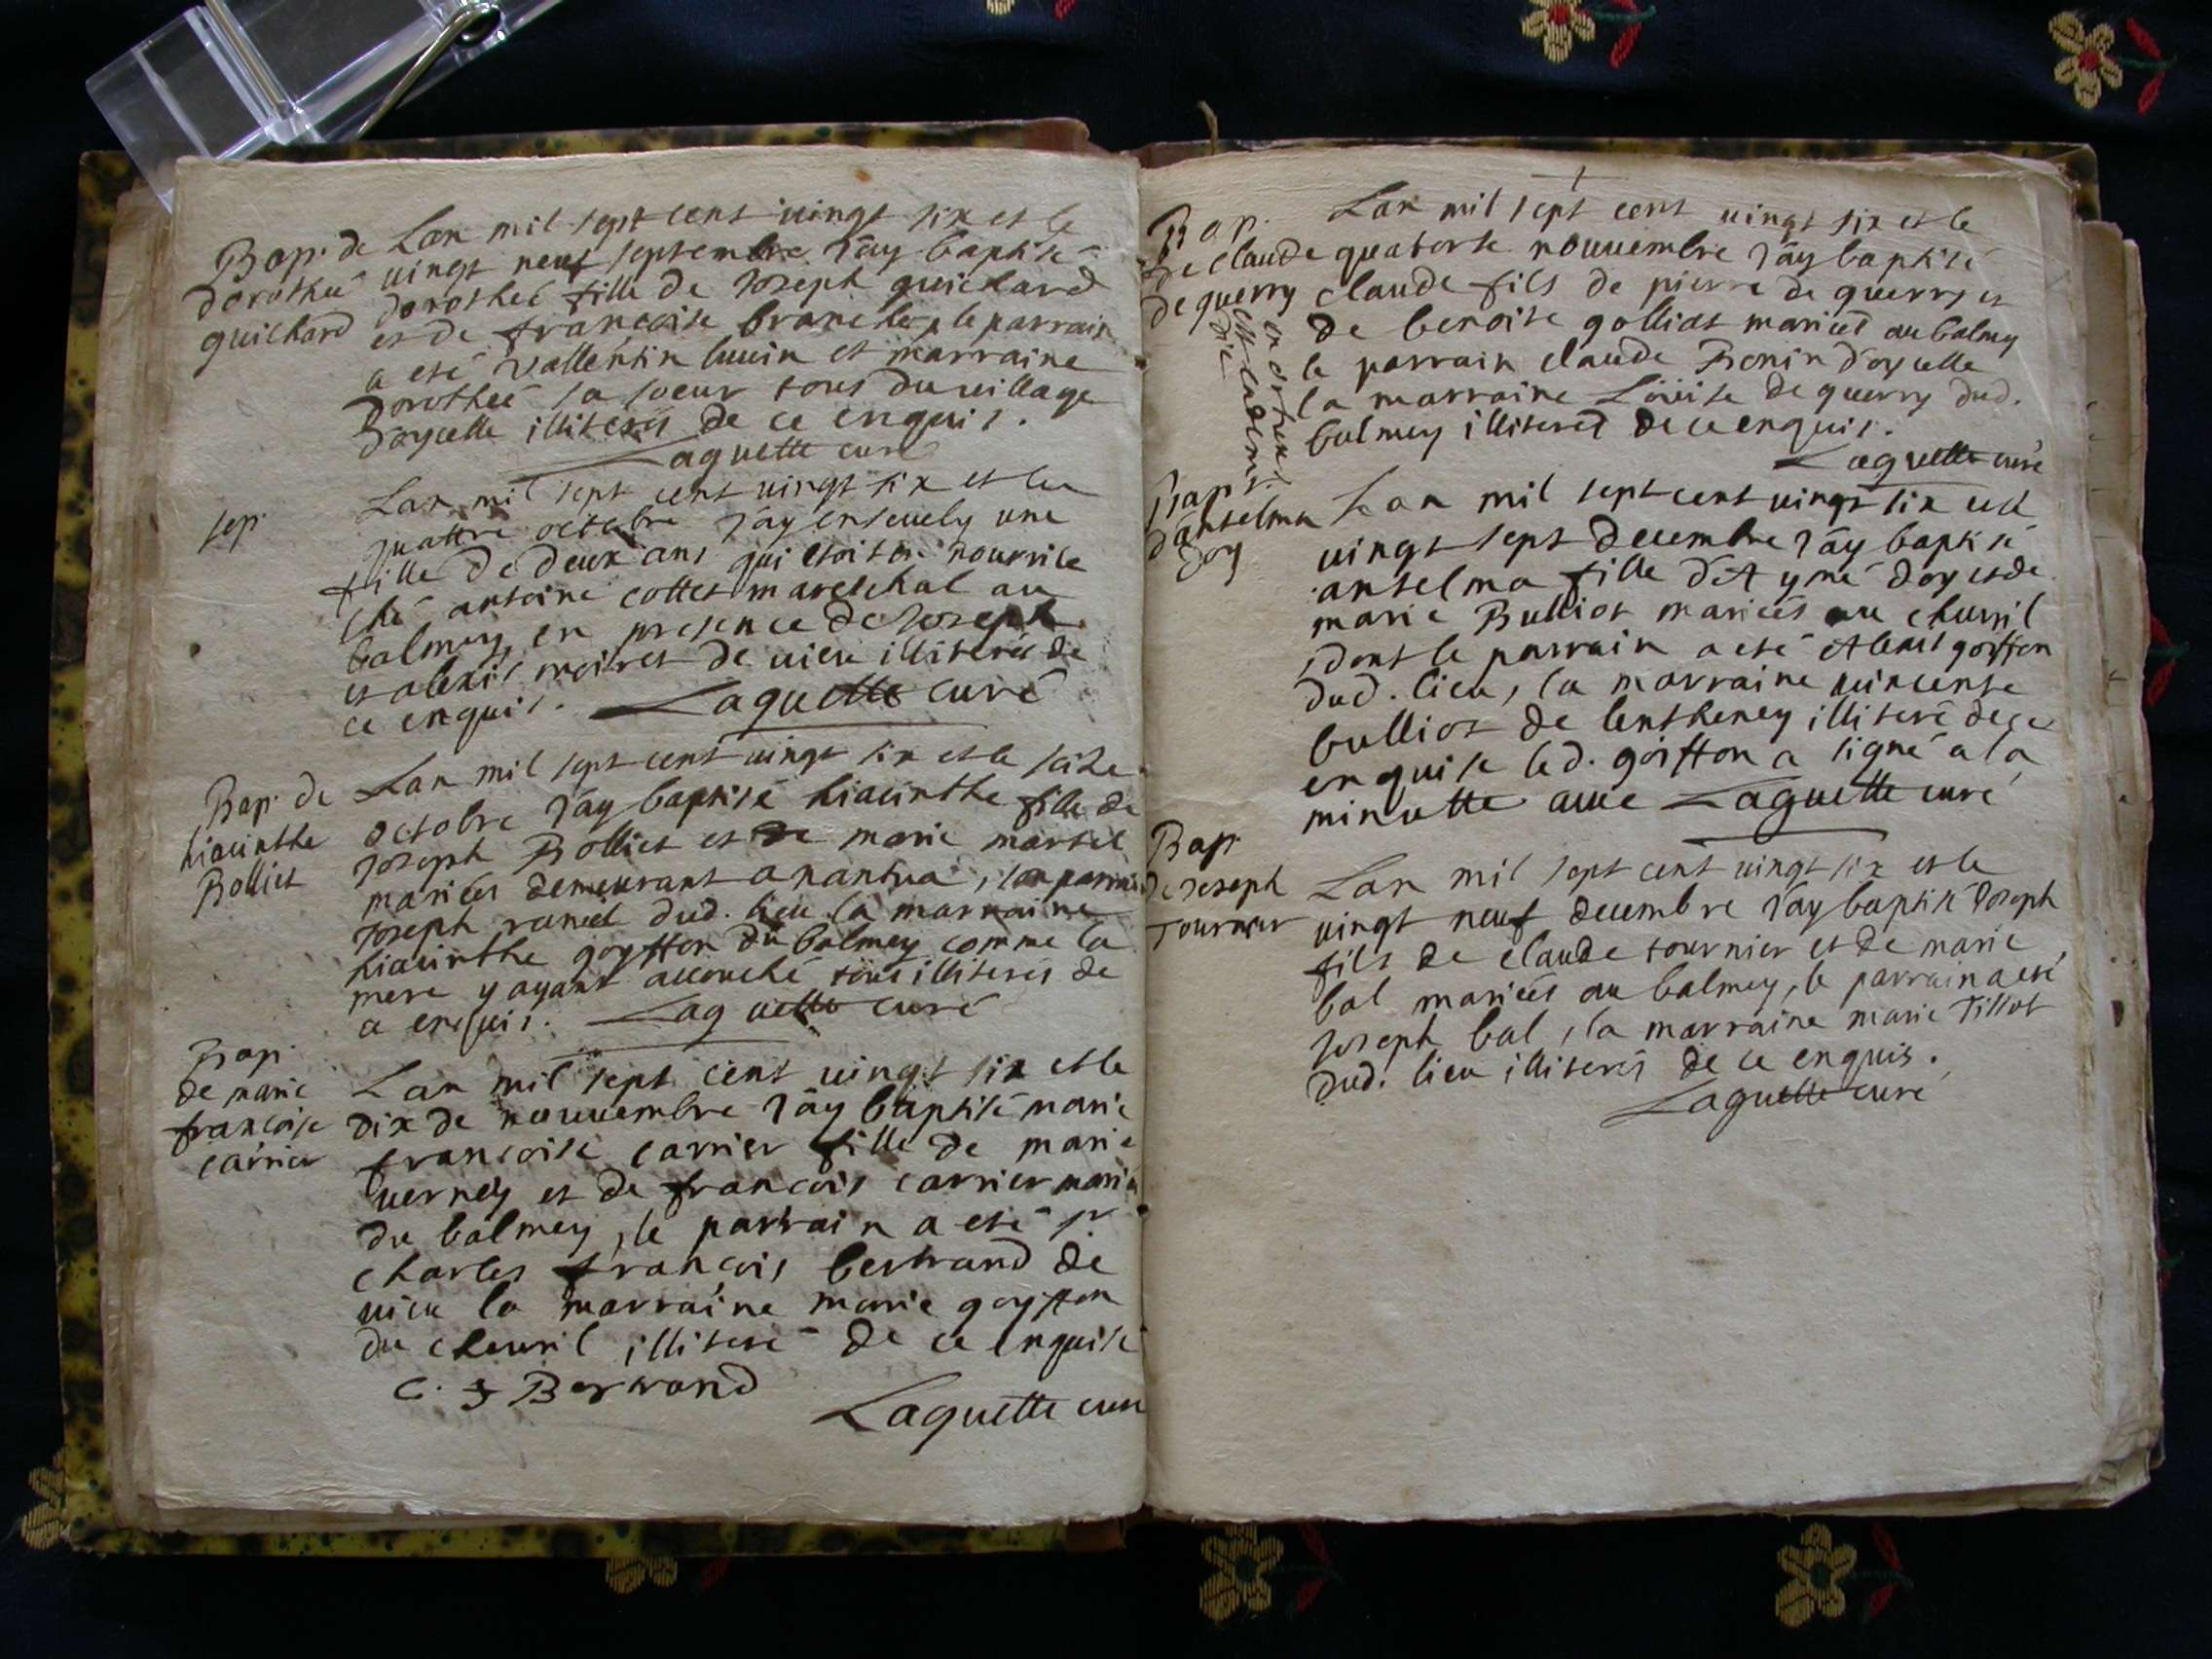 Bap. de
dorothée
guichard
Lan mil sept cent vingt six et le
vingt neuf septembre Jay baptisé
dorothée fille de Joseph guichard
et de francoise le parrain
a esté vallentin et marraine
Dorothée sa soeur tous du village
Doycelle illiterés de ce enquis.
Laguette curé
sep.
Lan mil sept cent vingt six et le
quattre octobre Jay ensevely une
fille de deux ans qui estoit en nourrice
ché antoine cottet mareschal au
balmey, en presence de Joseph
et alexis moiret de vieu illiterés de
ce enquis. Laguette curé
Bap. de
hiacinthe
Bolliet
Lan mil sept cent vingt six et le seize
octobre Jay baptisé hiacinthe fille de
Joseph Bolliet et de marie martel
mariées demeurant a nantua, son parrain
Joseph dud. lieu la marraine
hiacinthe goyffon du balmey comme la
mere y ayant accouché tous illiterés de
ce enquis. Laguette curé
Bap.
de marie
francoise
carrier
Lan mil sept cent vingt six et le
dix de nouvembre Jay baptisé marie
francoise carrier fille de marie
verney et de francois carrier mariés
du balmey, le parrain a esté sr
charles francois bertrand de
vieu la marraine marie goyffon
du chevril illiteré de ce enquise
C. f Bertrand
Laguette curé
Bap.
de claude
de querry
Lan mil sept cent vingt six et le
quatorse nouvembre Jay baptisé
claude fils de pierre de querry et
de benoise golliat mariées au balmey
le parrain claude Bonin doycelle
la marraine Löuise de querry dud.
balmey illiteres de ce enquis.
Laguette curé
Bap.
danselma
doy
Lan mil sept cent vingt six et le
vingt sept decembre Jay baptisé
anselma fille dAymé doy et de
marie Bulliot mariées au chevril
, dont le parrain a esté Alexis goiffon
dud. lieu, la marraine vincente
bulliot de lentheney illiteré de ce
enquise led. goiffon a signé a la
minutte avec Laguette curé
Bap.
de Joseph
Tournier
Lan mil sept cent vingt six et le
vingt neuf decembre Jay baptisé Joseph
fils de claude tournier et de marie
bal mariées au balmey, le parrain a esté
Joseph bal, la marraine marie Tillot
dud. lieu illiterés de ce enquis.
Laguette curé